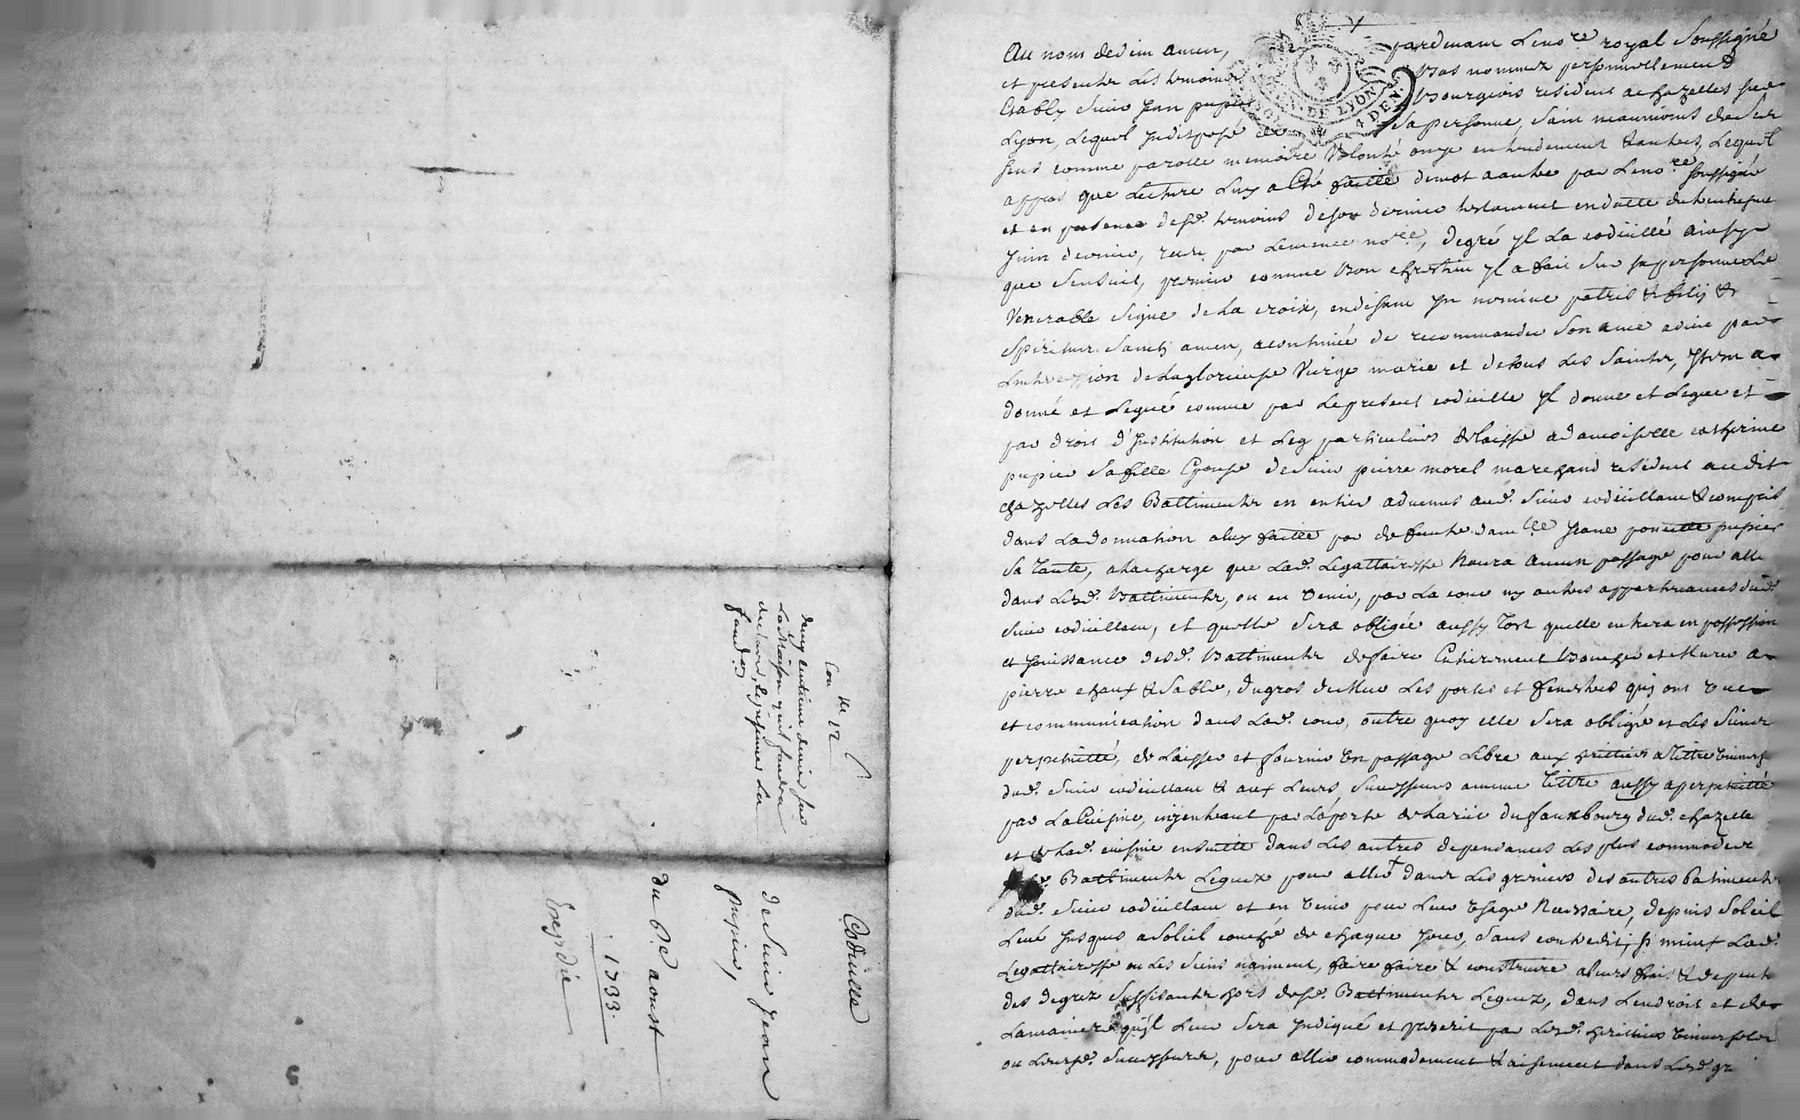 Codicille
de Sieur Jean
pupier,
du 6.e aoust
1733.
Expédié
Con.lle 12
La Maison qu'il faudra
Au nom de dieu amen, pardevant Le no.re royal Soussigné
et presents les temoins bas nommez personnellement
Estably Sieur Jean pupier Bourgeois resident a chazelles sur
Lyon, Lequel Indisposé de Sa personne, Sain neanmoins de Ses
Sens comme parolle memoire Volonté ouye entendement & autres, Lequel
appres que Lecture Luy a Eté faitte de mot a autre par Le no.re Soussigné
et en presence desd. temoins de son dernier testament en datte du
Juin dernier, receu par Le mesme no.re, de gré yl La codicillé ainsy
que Sensuit, premier comme bon chrestien yl a fait Sur Sa personne Le
Venerable Signe de La croix, en disant In nomine patris & filij &
Spiritus Sancti amen, a continué de recommander Son ame a dieu par
Lintercession de La glorieuse Vierge marie et de tous Les Saints, Item a
donné et Legué comme par Le present codicille yl donne et Legue et
par droit d'Institution et Leg particuliers delaisse a damoiselle catherine
pupier Sa fille Epouse de Sieur pierre morel marchand resident audit
chazelles Les Battiments en entier advenus aud. Sieur codicillant & compris
dans La donnation a luy faitte par deffunte dam.lle Jeane ponette pupier
Sa Tante, a la charge que Lad. Legattairesse Naura aucun passage pour aller
dans Lesd. Battiments, ou en Venir, par La cour ny autres appartenances dud.
Sieur codicillant, et quelle Sera obligée aussy Tost quelle entrera en possession
et Jouissance desd. Battiments de faire Entierement boucher et Murer a
pierre chaux & Sable, du gros du Mur Les portes et fenestres quy ont Vue
et communication dans Lad. cour, outre quoy elle Sera obligée et Les Siens
perpetuité, de Laisser et fournir Un passage Libre aux heritiers a Tittre Universel
dud. Sieur codicillant & aux Leurs Successeurs a mesme Tittre aussy a perpetuité
par La Cuisine, en entrant par La porte du faux bourg dud. chazelle
et de Lad. cuisine ensuitte dans Les autres dependances Les plus commodes
Battiments Leguez pour aller dans Les greniers des autres batiments
dud. Sieur codicillant et en Venir pour Leur Usage Necessaire, depuis Soleil
Levé Jusques a Soleil couché de chaque Jour, Sans contredit, Si mieux Lad.
Legattairesse ou Les Siens naiment, faire faire & construire a leurs frais & depents
des degrez Suffisants hors desd. Battiments Leguez, dans Lendroit et de
La maniere quyl Leur Sera Indiqué et prescrit par Lesd. heritiers Universels
ou Leursd. Successeurs, pour aller commodement & aisement dans Lesd. gr